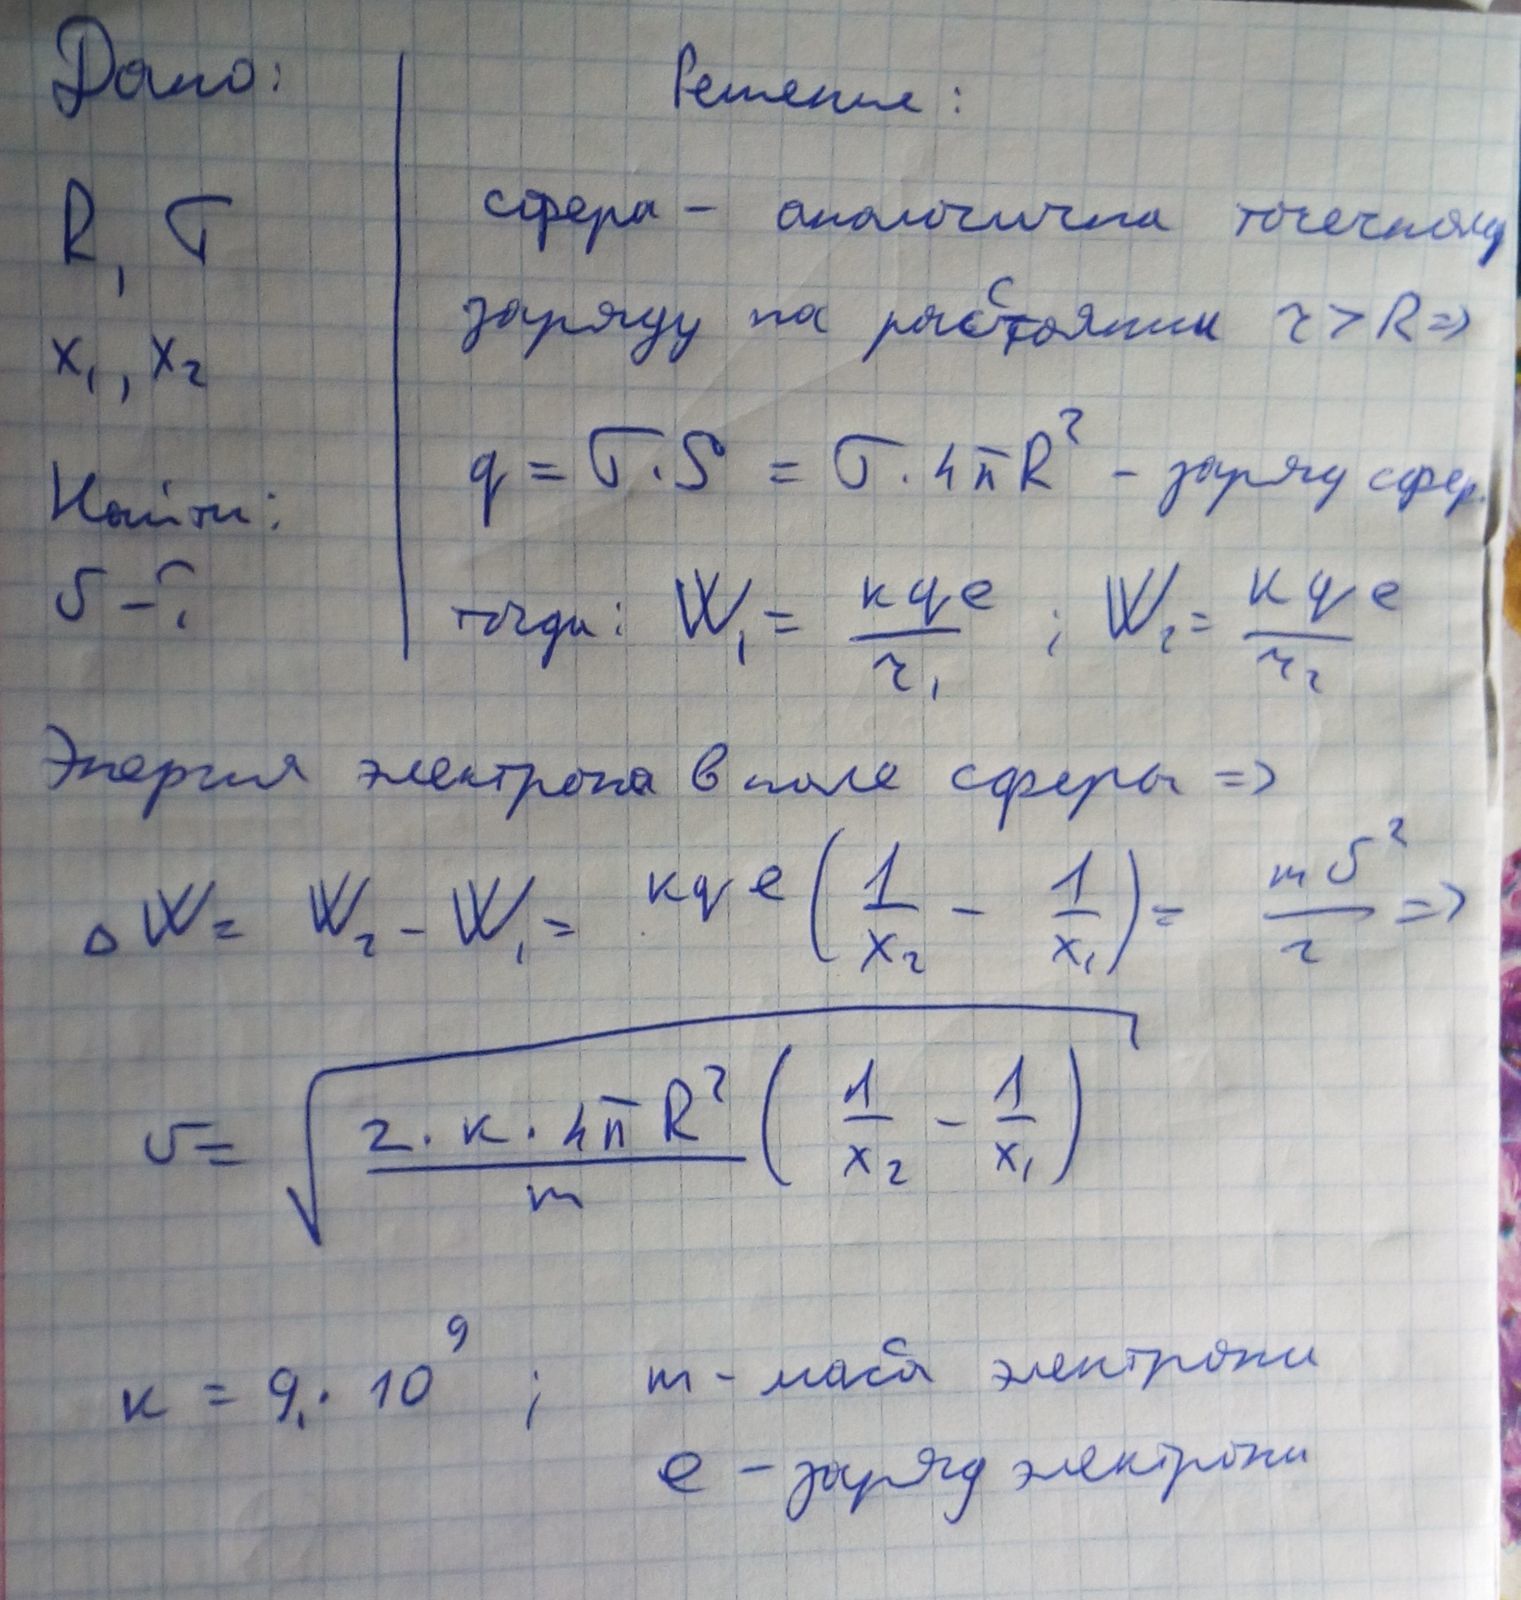 Дано:
R, σ
x₁, x₂
Найти:
υ - ?
Решение:
сфера - аналогична точечному
заряду на расстоянии r > R =>
q = σ · S = σ · 4πR² - заряд сфер.
тогда: W₁ = kqe/r₁ ; W₂ = kqe/r₂
Энергия электрона в поле сферы =>
ΔW = W₂ - W₁ = kqe (1/x₂ - 1/x₁) = mυ²/2 =>
υ = √(2 · k · 4πR²/m (1/x₂ - 1/x₁))
k = 9 · 10⁹ ; m - масса электрона
e - заряд электрона